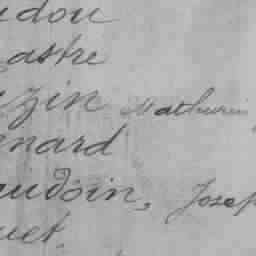 udou
astre
zin Mathurin
nard
audoin, Josep
uet.